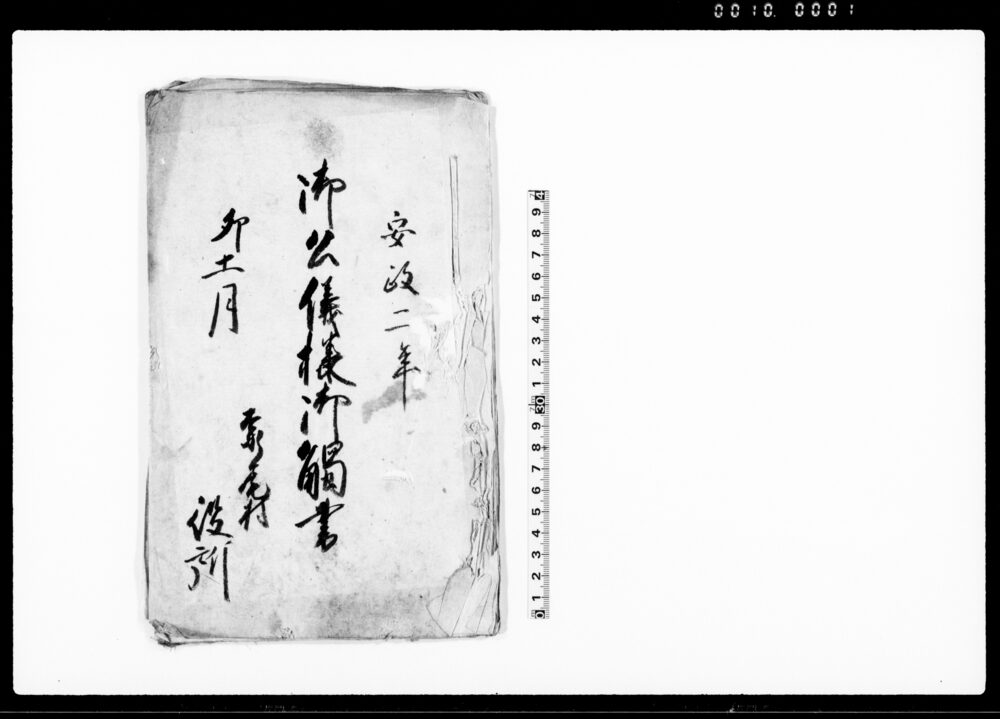 0010 0001
安政二年
御公儀様御觸書
卯十一月
尾村
役所
0 1 2 3 4 5 6 7 8 9 30 1 2 3 4 5 6 7 8 9 4